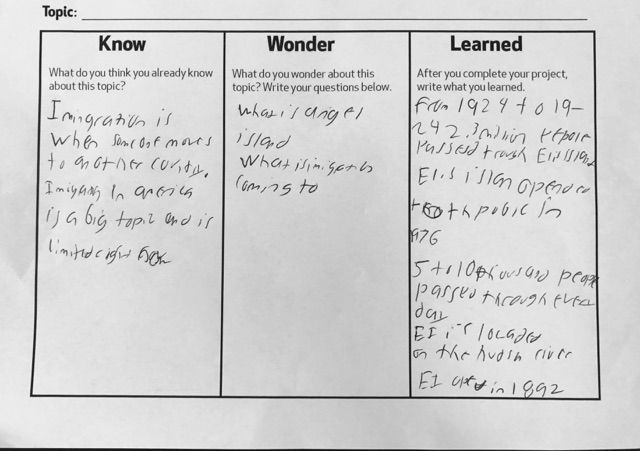 Topic:
Know
What do you think you already know
about this topic?
Imigration is
When someone moves
to another
in america
is a big topic and is
limited right
Wonder
What do you wonder about this
topic? Write your questions below.
What is angel
island
What is
coming to
Learned
After you complete your project,
write what you learned.
From 1924 to 19-
24 2.3 million
Passed trough
opened
in
1976
5 to 10 thousand people
passed through every
day
EI is located
on the hudsn river
EI in 1892